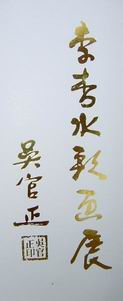 李書水彩画展
吴官正
吴官正印